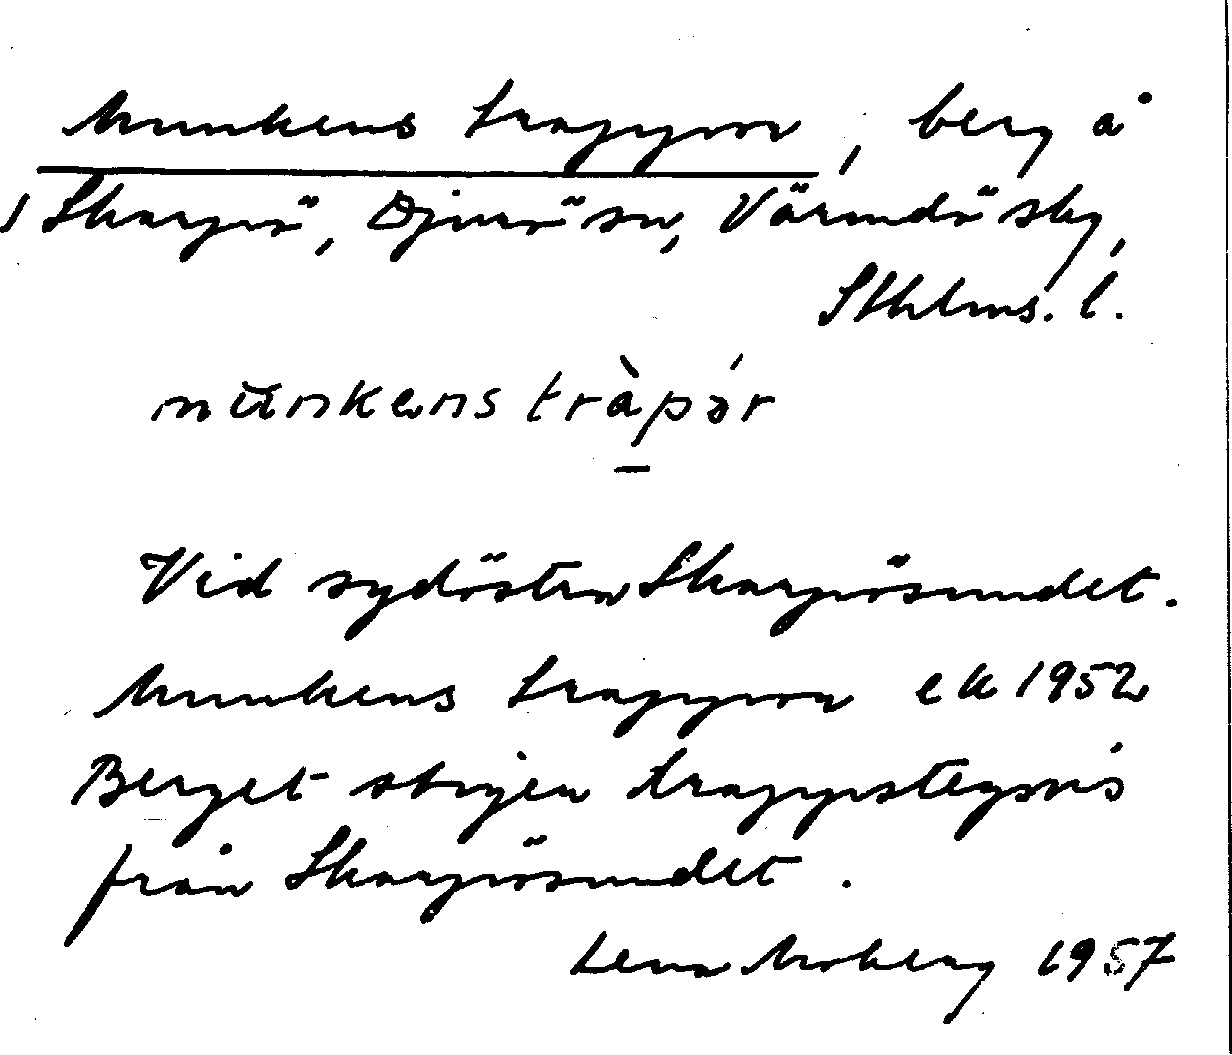 Munkens trappor, berg å
Skarpö, Djurö sn, Värmdö sky,
Sthlms. l.
munkens tràpór
Vid sydöstra Skarpösundet.
Munkens trappor ek 1952
Berget stiger trappstegsvis
från Skarpösundet.
Lena Moberg 1957